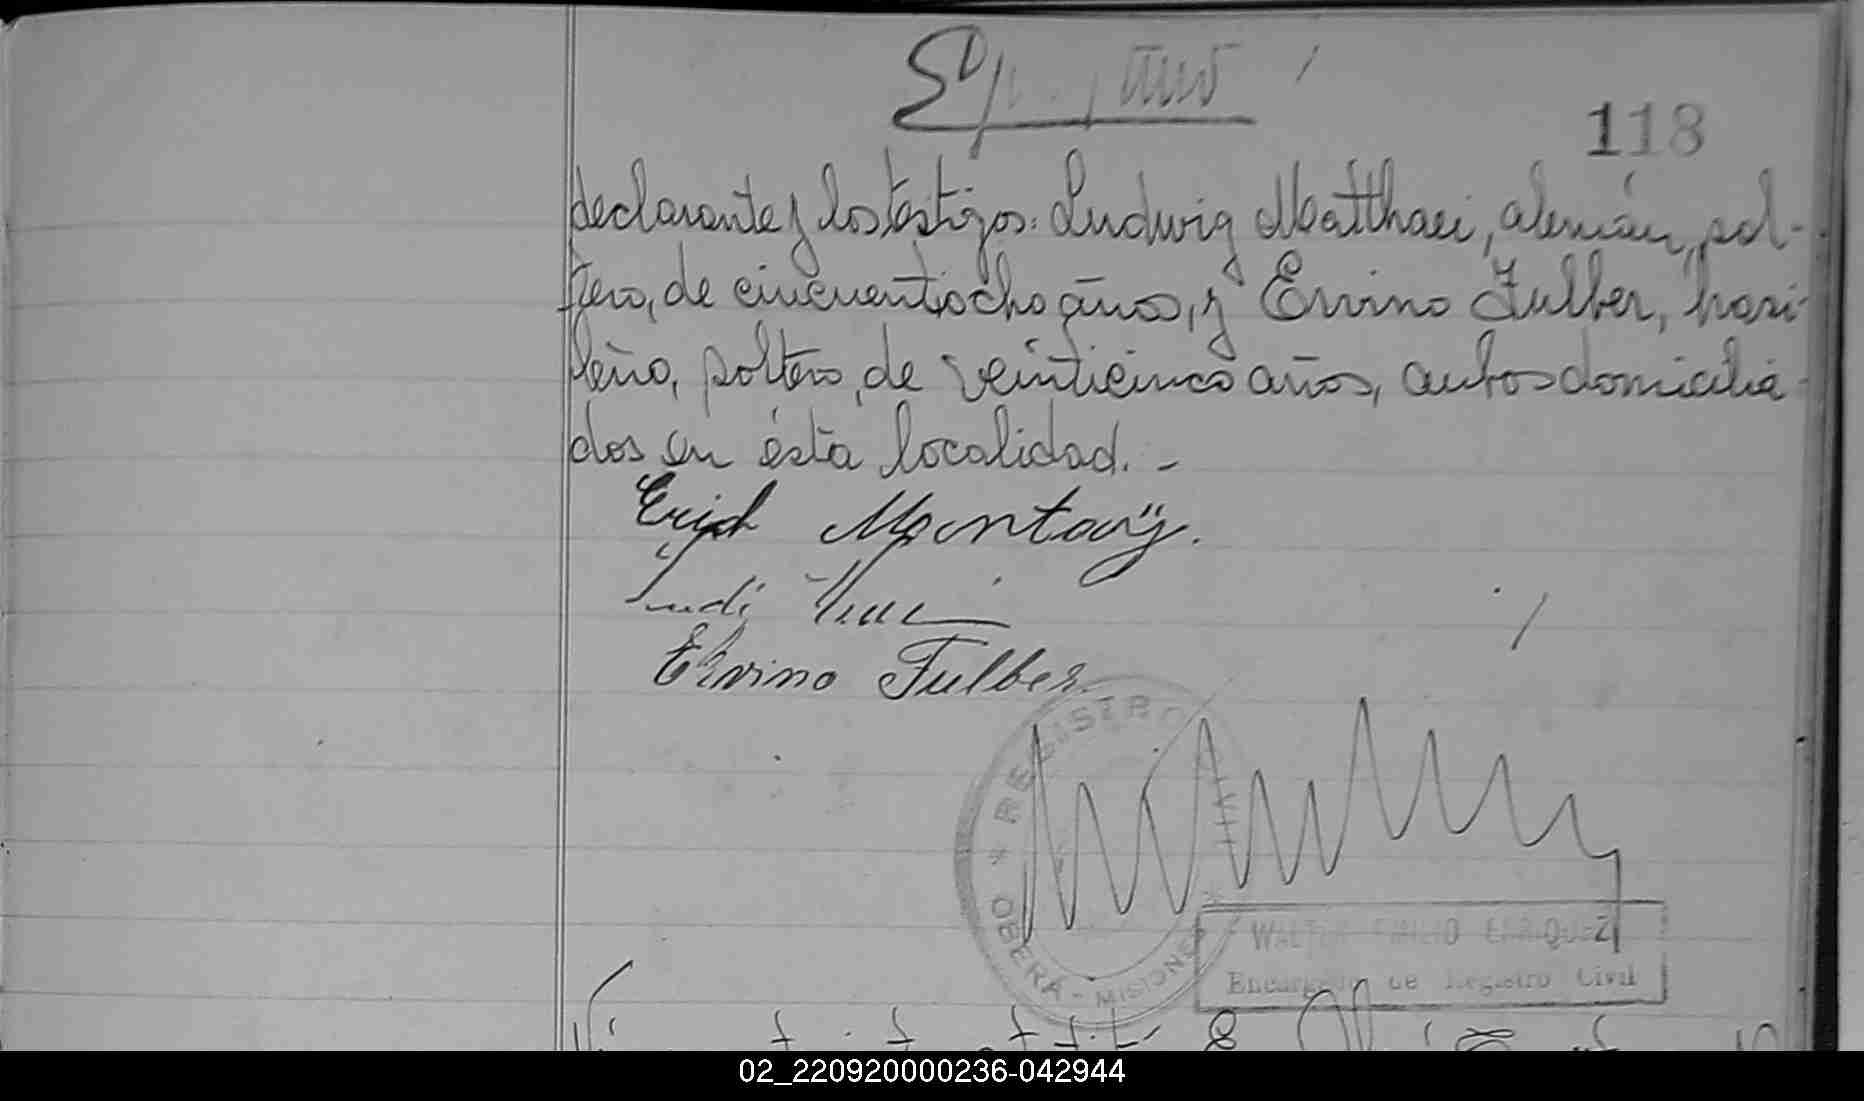 118
declarante y los testigos: Ludwig Matthaei, alemán, sol-
tero, de cincuentiocho años, y Ervino Fulber, brasi-
leño, soltero, de veinticinco años, ambos domicilia-
dos en ésta localidad. -
Erich Montaÿ.
Ervino Fulber
REGISTRO CIVIL
* OBERÁ - MISIONES *
WALTER EMILIO ENRIQUEZ
Encargado de Registro Civil
02_220920000236-042944